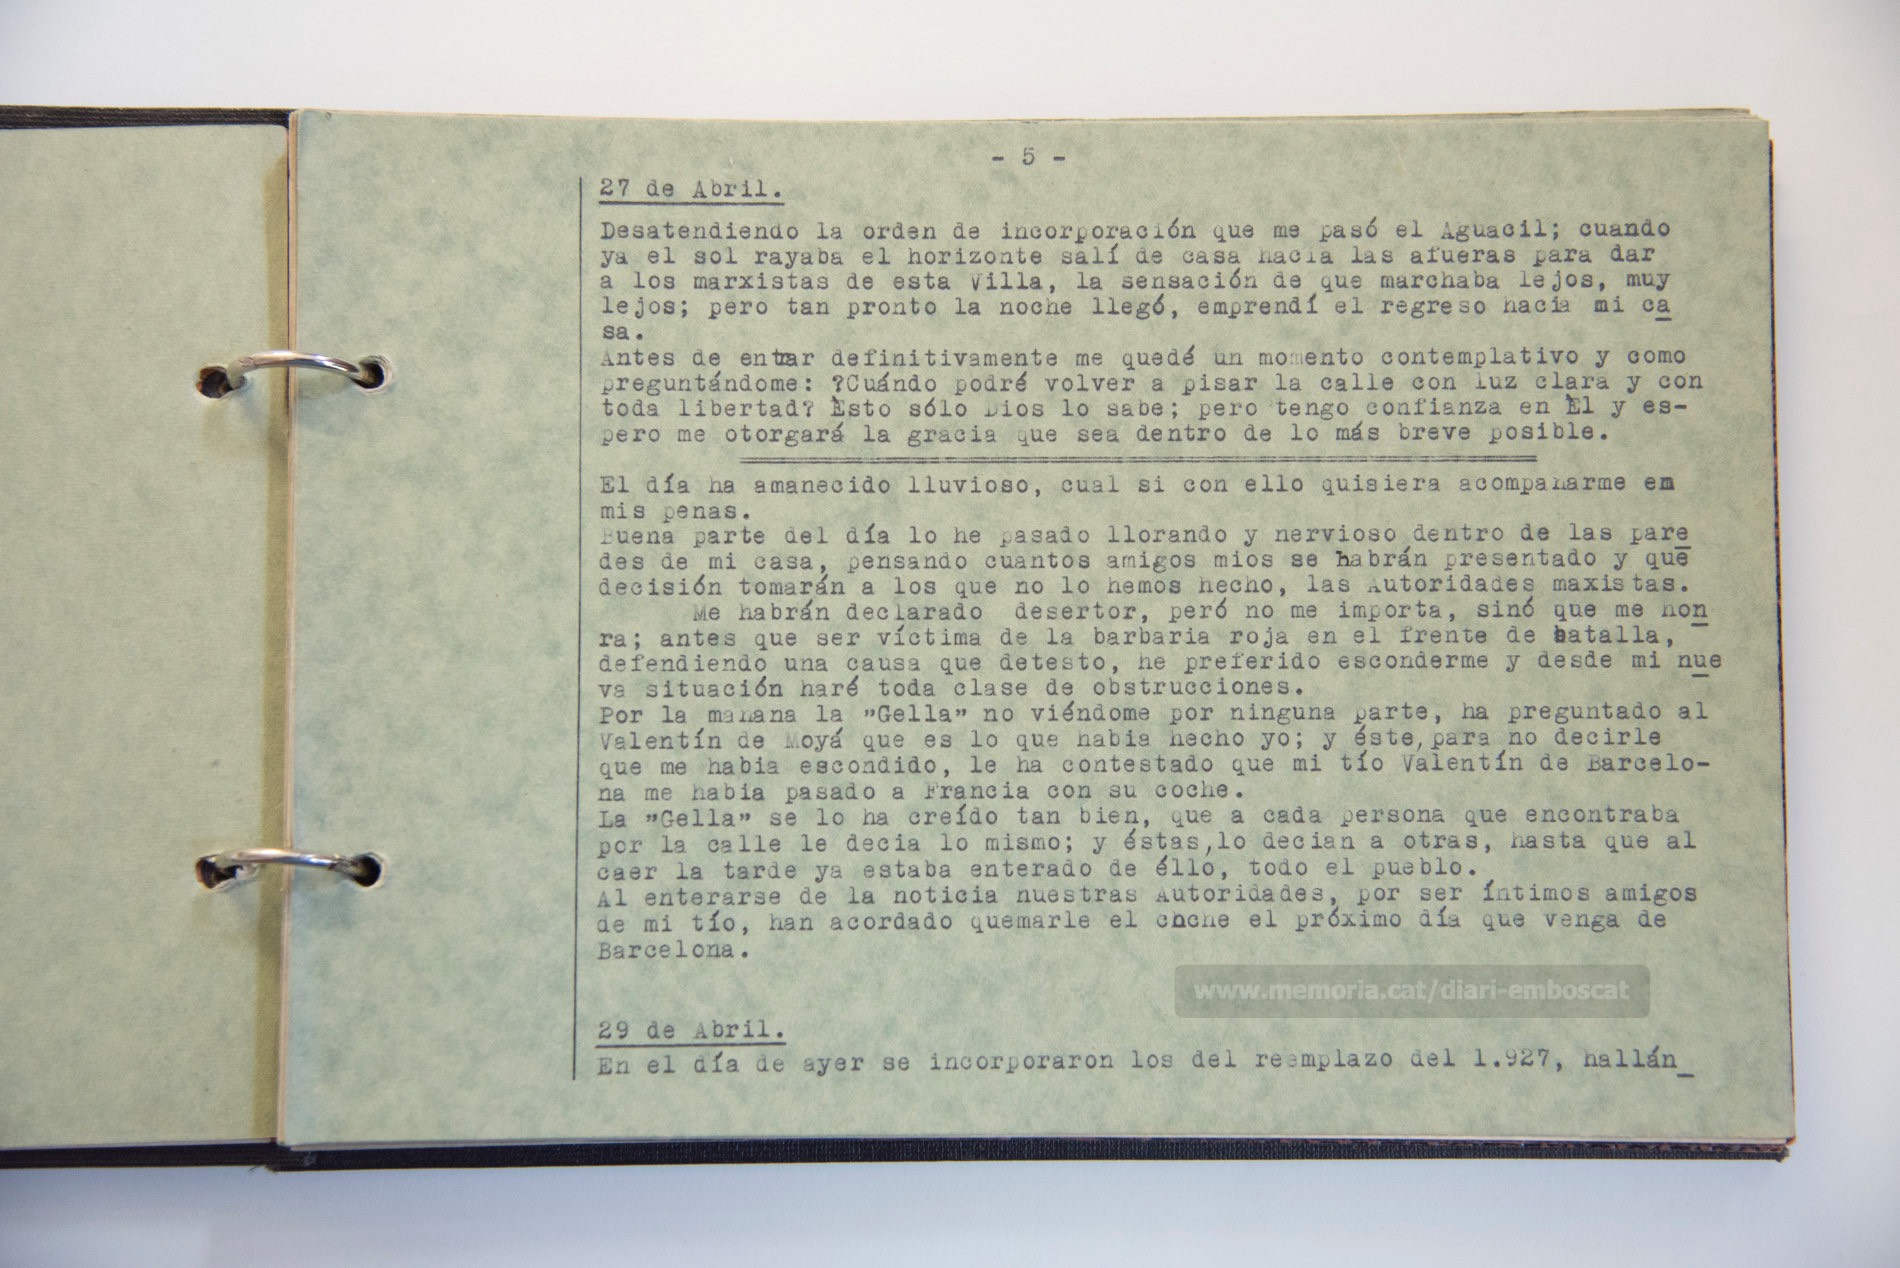 - 5 -
27 de Abril.
Desatendiendo la orden de incorporación que me pasó el Aguacil; cuando
ya el sol rayaba el horizonte salí de casa hacia las afueras para dar
a los marxistas de esta Villa, la sensación de que marchaba lejos, muy
lejos; pero tan pronto la noche llegó, emprendí el regreso hacia mi ca
sa.
Antes de entrar definitivamente me quedé un momento contemplativo y como
preguntándome: ?Cuándo podré volver a pisar la calle con luz clara y con
toda libertad? Esto sólo Dios lo sabe; pero tengo confianza en Él y es-
pero me otorgará la gracia que sea dentro de lo más breve posible.
El día ha amanecido lluvioso, cual si con ello quisiera acompañarme en
mis penas.
Buena parte del día lo he pasado llorando y nervioso dentro de las pare
des de mi casa, pensando cuantos amigos mios se habrán presentado y qué
decisión tomarán a los que no lo hemos hecho, las Autoridades maxistas.
Me habrán declarado desertor, peró no me importa, sinó que me hon
ra; antes que ser víctima de la barbaria roja en el frente de batalla,
defendiendo una causa que detesto, he preferido esconderme y desde mi nue
va situación haré toda clase de obstrucciones.
Por la mañana la "Gella" no viéndome por ninguna parte, ha preguntado al
Valentín de Moyá que es lo que habia hecho yo; y éste, para no decirle
que me habia escondido, le ha contestado que mi tío Valentín de Barcelo-
na me habia pasado a Francia con su coche.
La "Gella" se lo ha creído tan bien, que a cada persona que encontraba
por la calle le decia lo mismo; y éstas, lo decian a otras, hasta que al
caer la tarde ya estaba enterado de éllo, todo el pueblo.
Al enterarse de la noticia nuestras Autoridades, por ser íntimos amigos
de mi tío, han acordado quemarle el coche el próximo día que venga de
Barcelona.
www.memoria.cat/diari-emboscat
29 de Abril.
En el día de ayer se incorporaron los del reemplazo del 1.927, hallán_